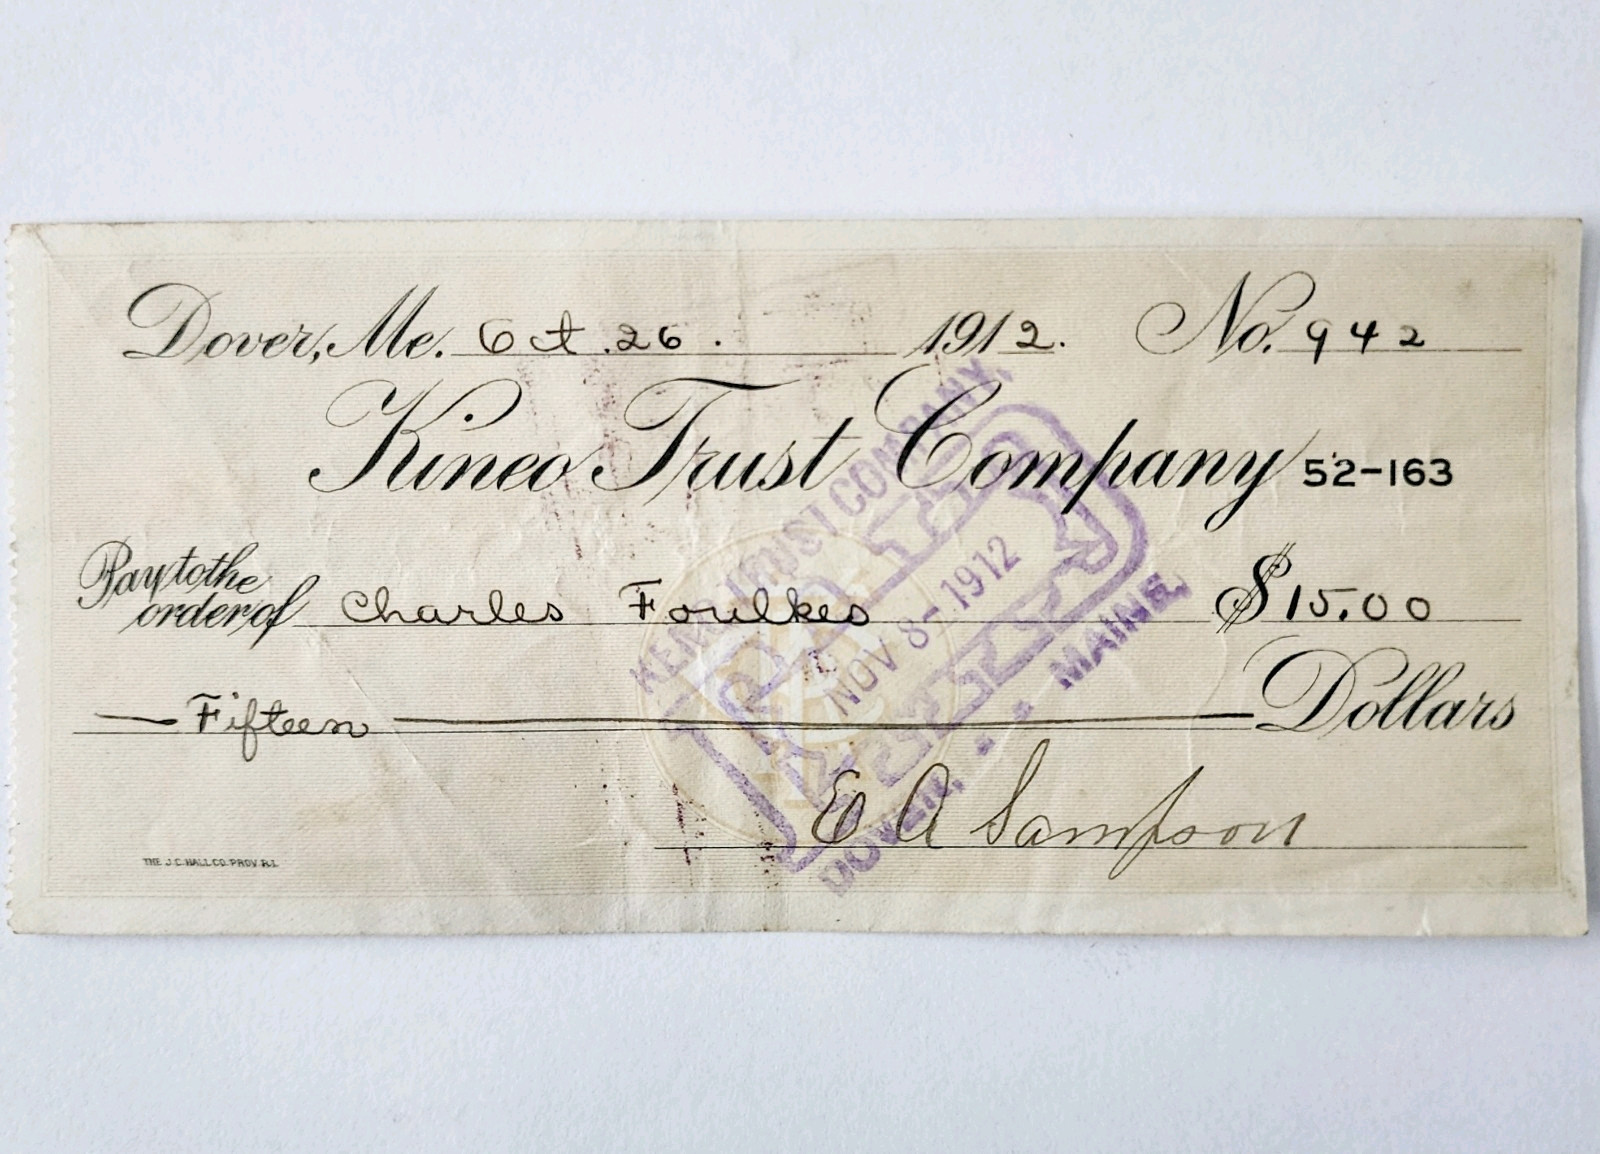 Dover, Me. Oct. 26. 1912. No. 942
Kineo Trust Company 52-163
Pay to the
order of Charles Foulkes $15.00
Fifteen Dollars
E A Sampson
THE J.C. HALL CO. PROV. R.I.
TRUST COMPANY,
PAID
NOV 8-1912
DOVER, MAINE,